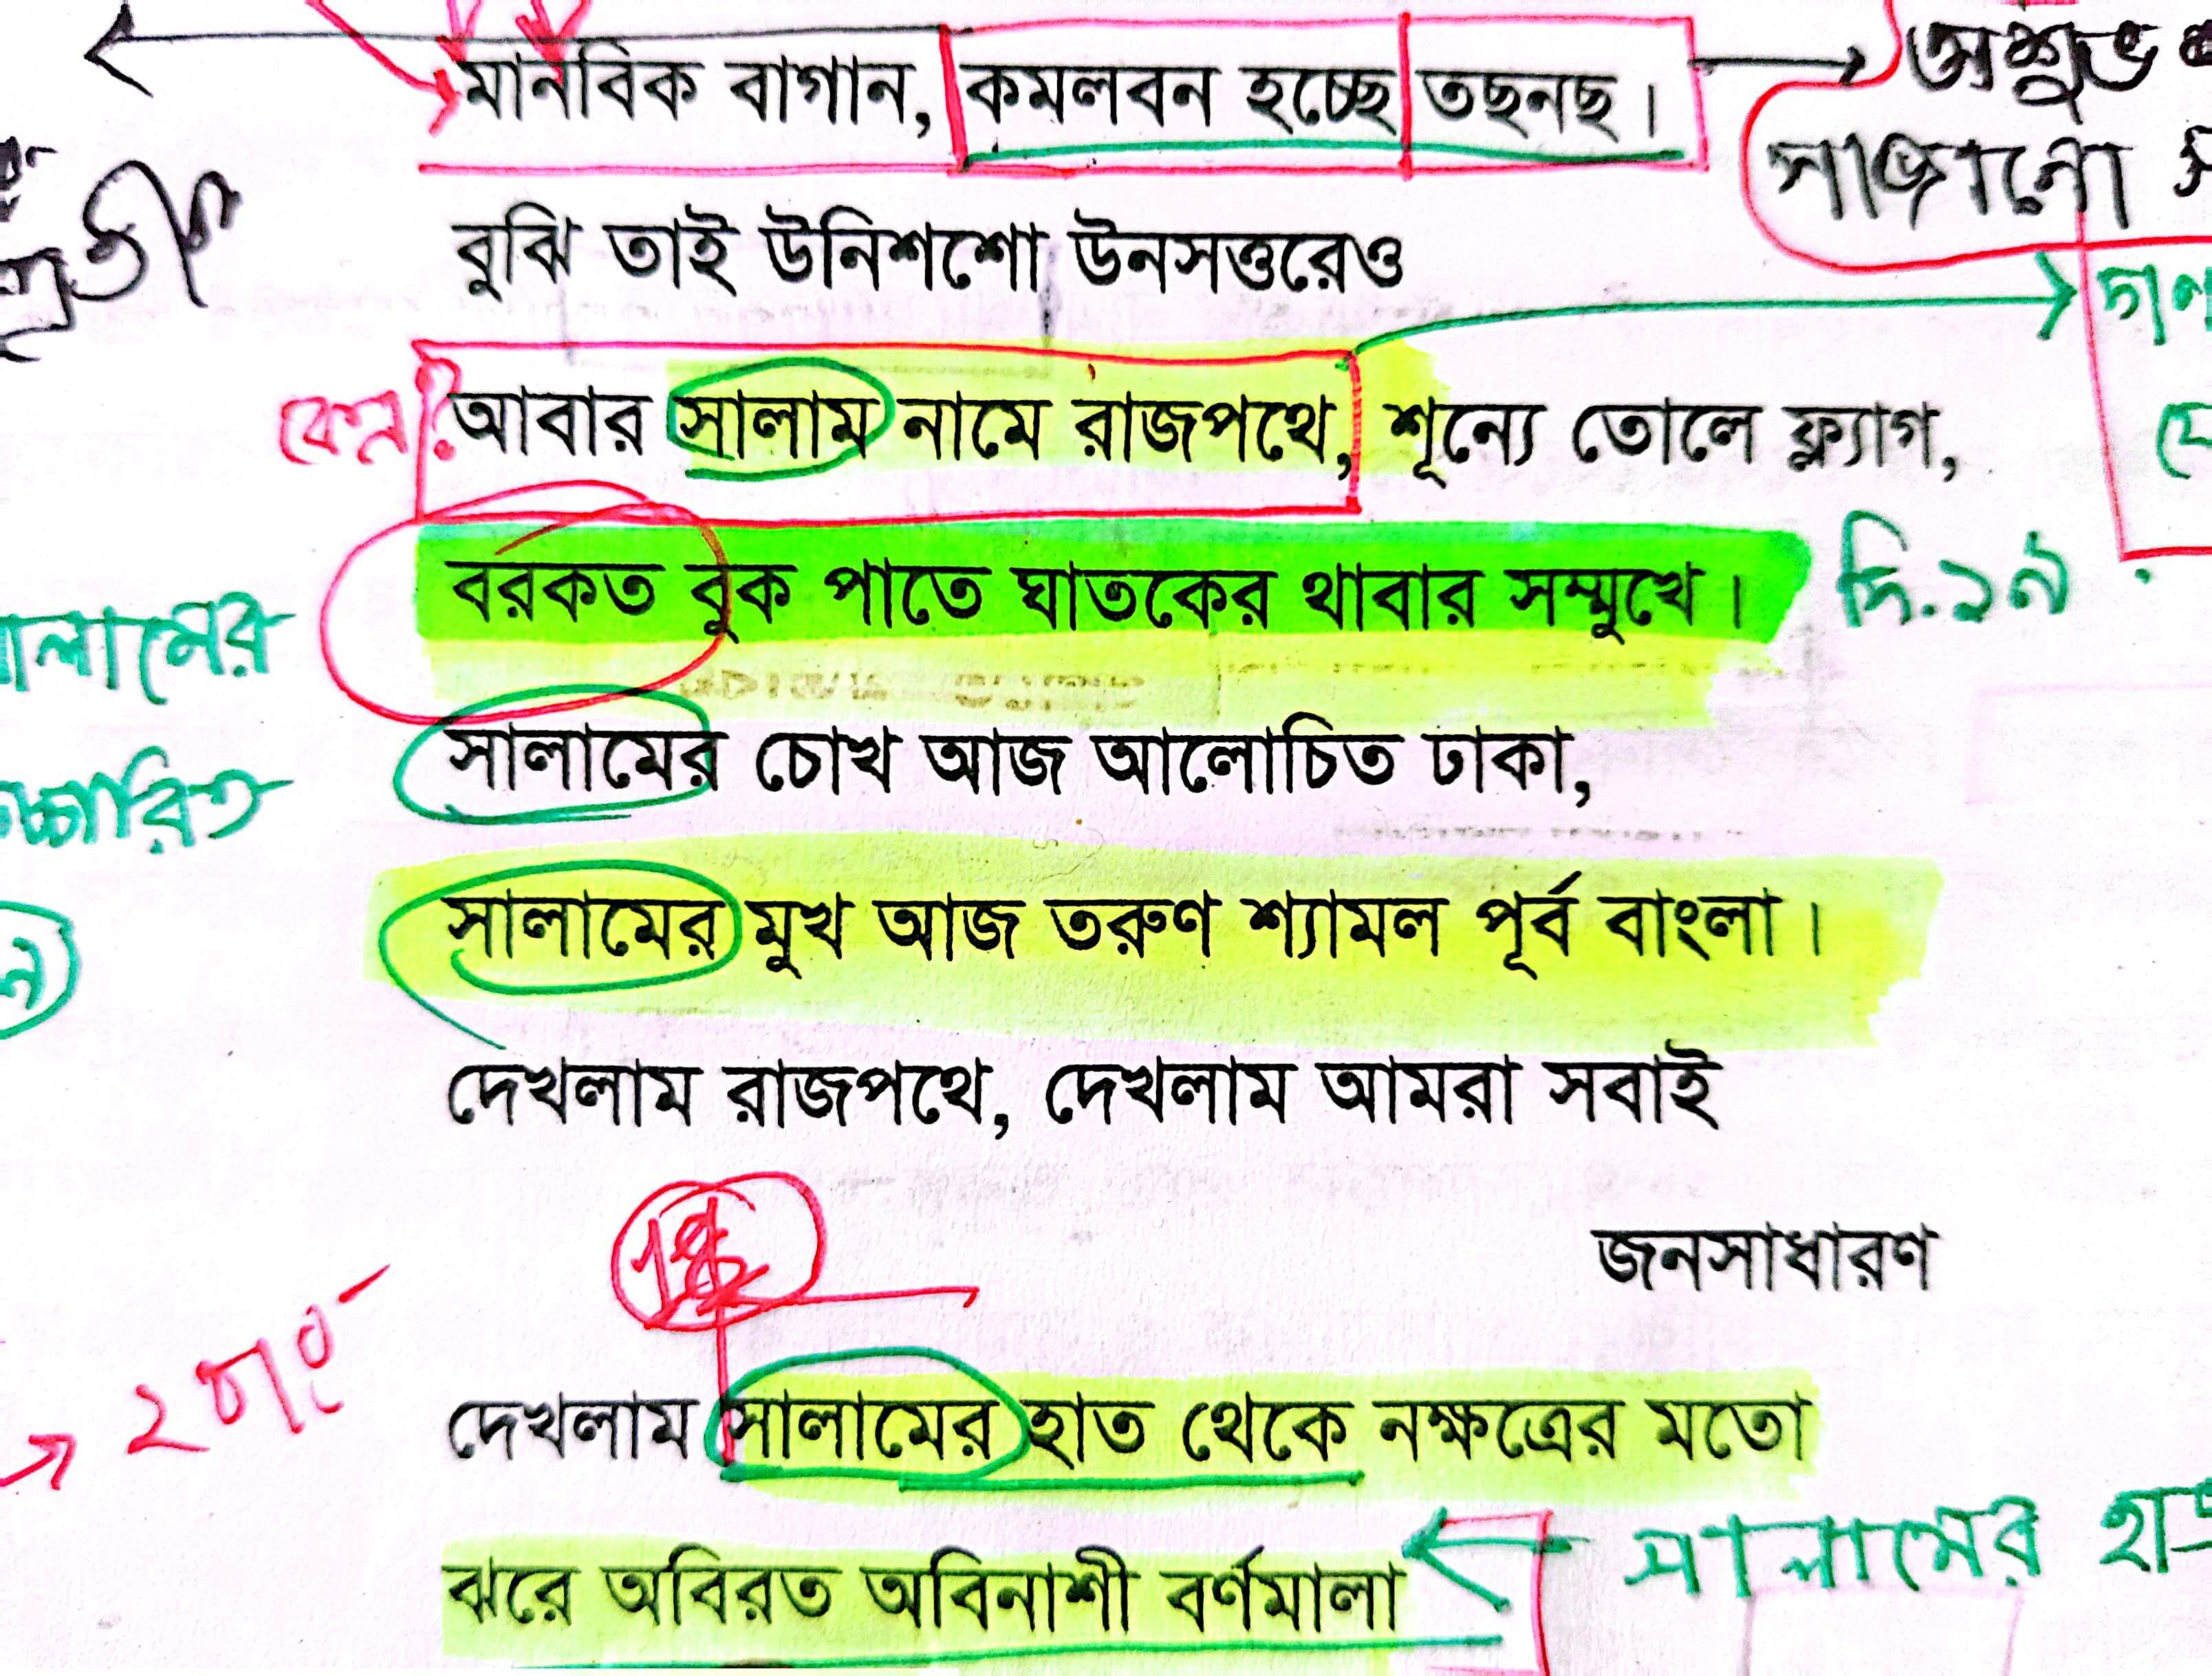 মানবিক বাগান, কমলবন হচ্ছে তছনছ।
অশুভ
সাজানো
বুঝি তাই উনিশশো উনসত্তরেও
কেন?
আবার সালাম নামে রাজপথে, শূন্যে তোলে ফ্ল্যাগ,
বরকত বুক পাতে ঘাতকের থাবার সম্মুখে।
দি.১৯
সালামের চোখ আজ আলোচিত ঢাকা,
সালামের মুখ আজ তরুণ শ্যামল পূর্ব বাংলা।
দেখলাম রাজপথে, দেখলাম আমরা সবাই
জনসাধারণ
দেখলাম সালামের হাত থেকে নক্ষত্রের মতো
ঝরে অবিরত অবিনাশী বর্ণমালা
সালামের